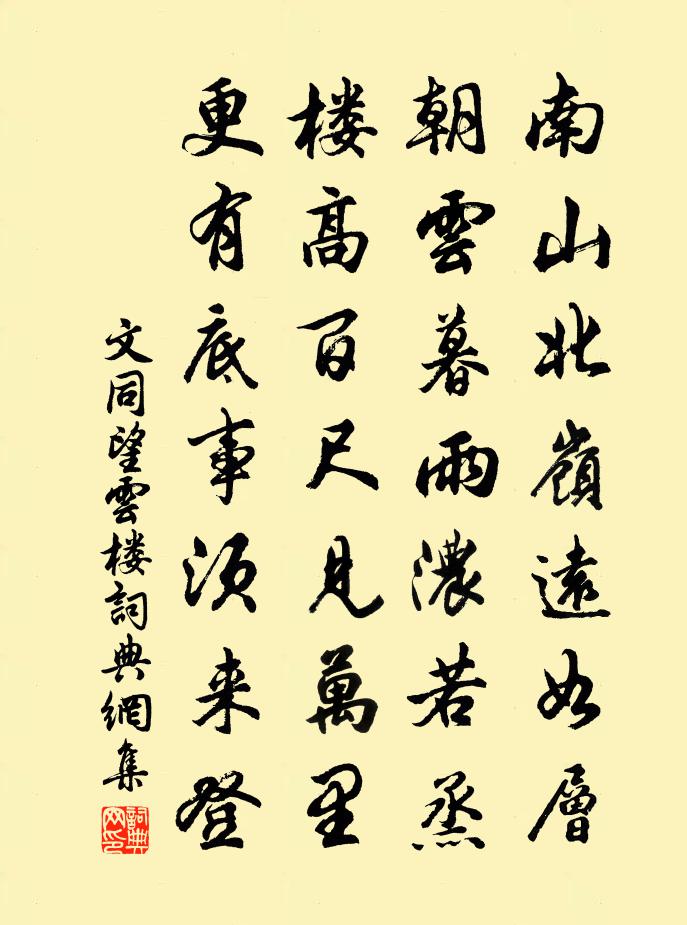 南山北嶺遠如層
朝雲暮雨濃若蒸
楼高百尺見萬里
更有底事須来登
文同望雲楼詞典網集
詞典网印